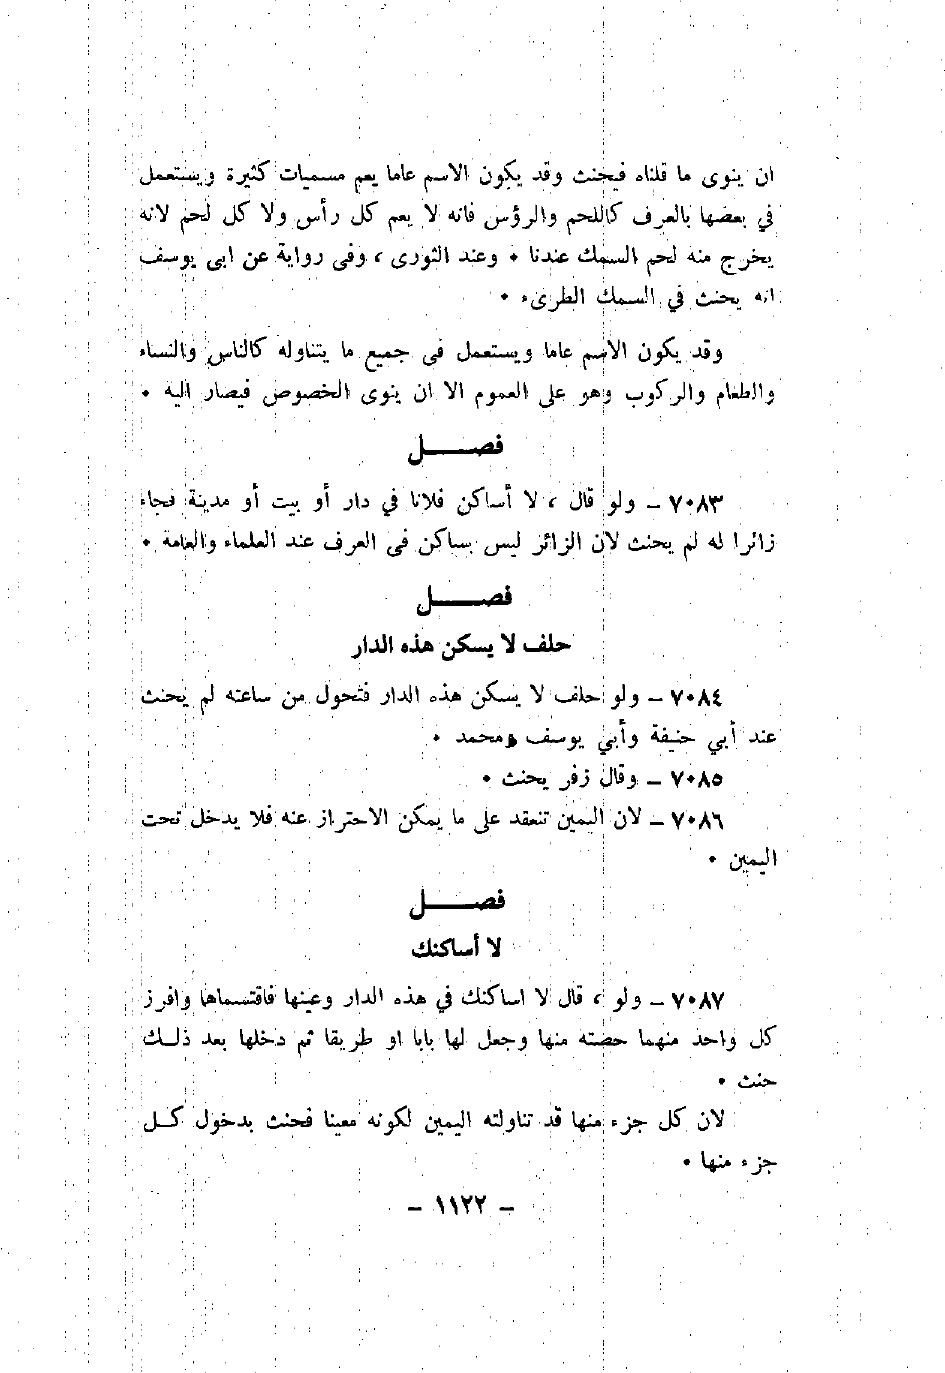 ان ينوى ما قلناه فيحنث وقد يكون الاسم عاما يعم مسميات كثيرة ويستعمل
في بعضها بالعرف كاللحم والرؤس فانه لا يعم كل رأس ولا كل لحم لانه
يخرج منه لحم السمك عندنا • وعند الثورى ، وفى رواية عن ابى يوسف
انه يحنث في السمك الطرىء •
وقد يكون الاسم عاما ويستعمل فى جميع ما يتناوله كالناس والنساء
والطعام والركوب وهو على العموم الا ان ينوى الخصوص فيصار اليه •
فصــــل
٧٠٨٣ – ولو قال ، لا أساكن فلانا في دار أو بيت أو مدينة فجاء
زائرا له لم يحنث لان الزائر ليس بساكن فى العرف عند العلماء والعامة •
فصــــل
حلف لا يسكن هذه الدار
٧٠٨٤ – ولو حلف لا يسكن هذه الدار فتحول من ساعته لم يحنث
عند أبي حنيفة وأبي يوسف ومحمد •
٧٠٨٥ – وقال زفر يحنث •
٧٠٨٦ – لان اليمين تنعقد على ما يمكن الاحتراز عنه فلا يدخل تحت
اليمين •
فصــــل
لا أساكنك
٧٠٨٧ – ولو ، قال لا اساكنك في هذه الدار وعينها فاقتسماها وافرز
كل واحد منهما حصته منها وجعل لها بابا او طريقا ثم دخلها بعد ذلــك
حنث •
لان كل جزء منها قد تناولته اليمين لكونه معينا فحنث بدخول كــل
جزء منها •
– ١١٢٢ –